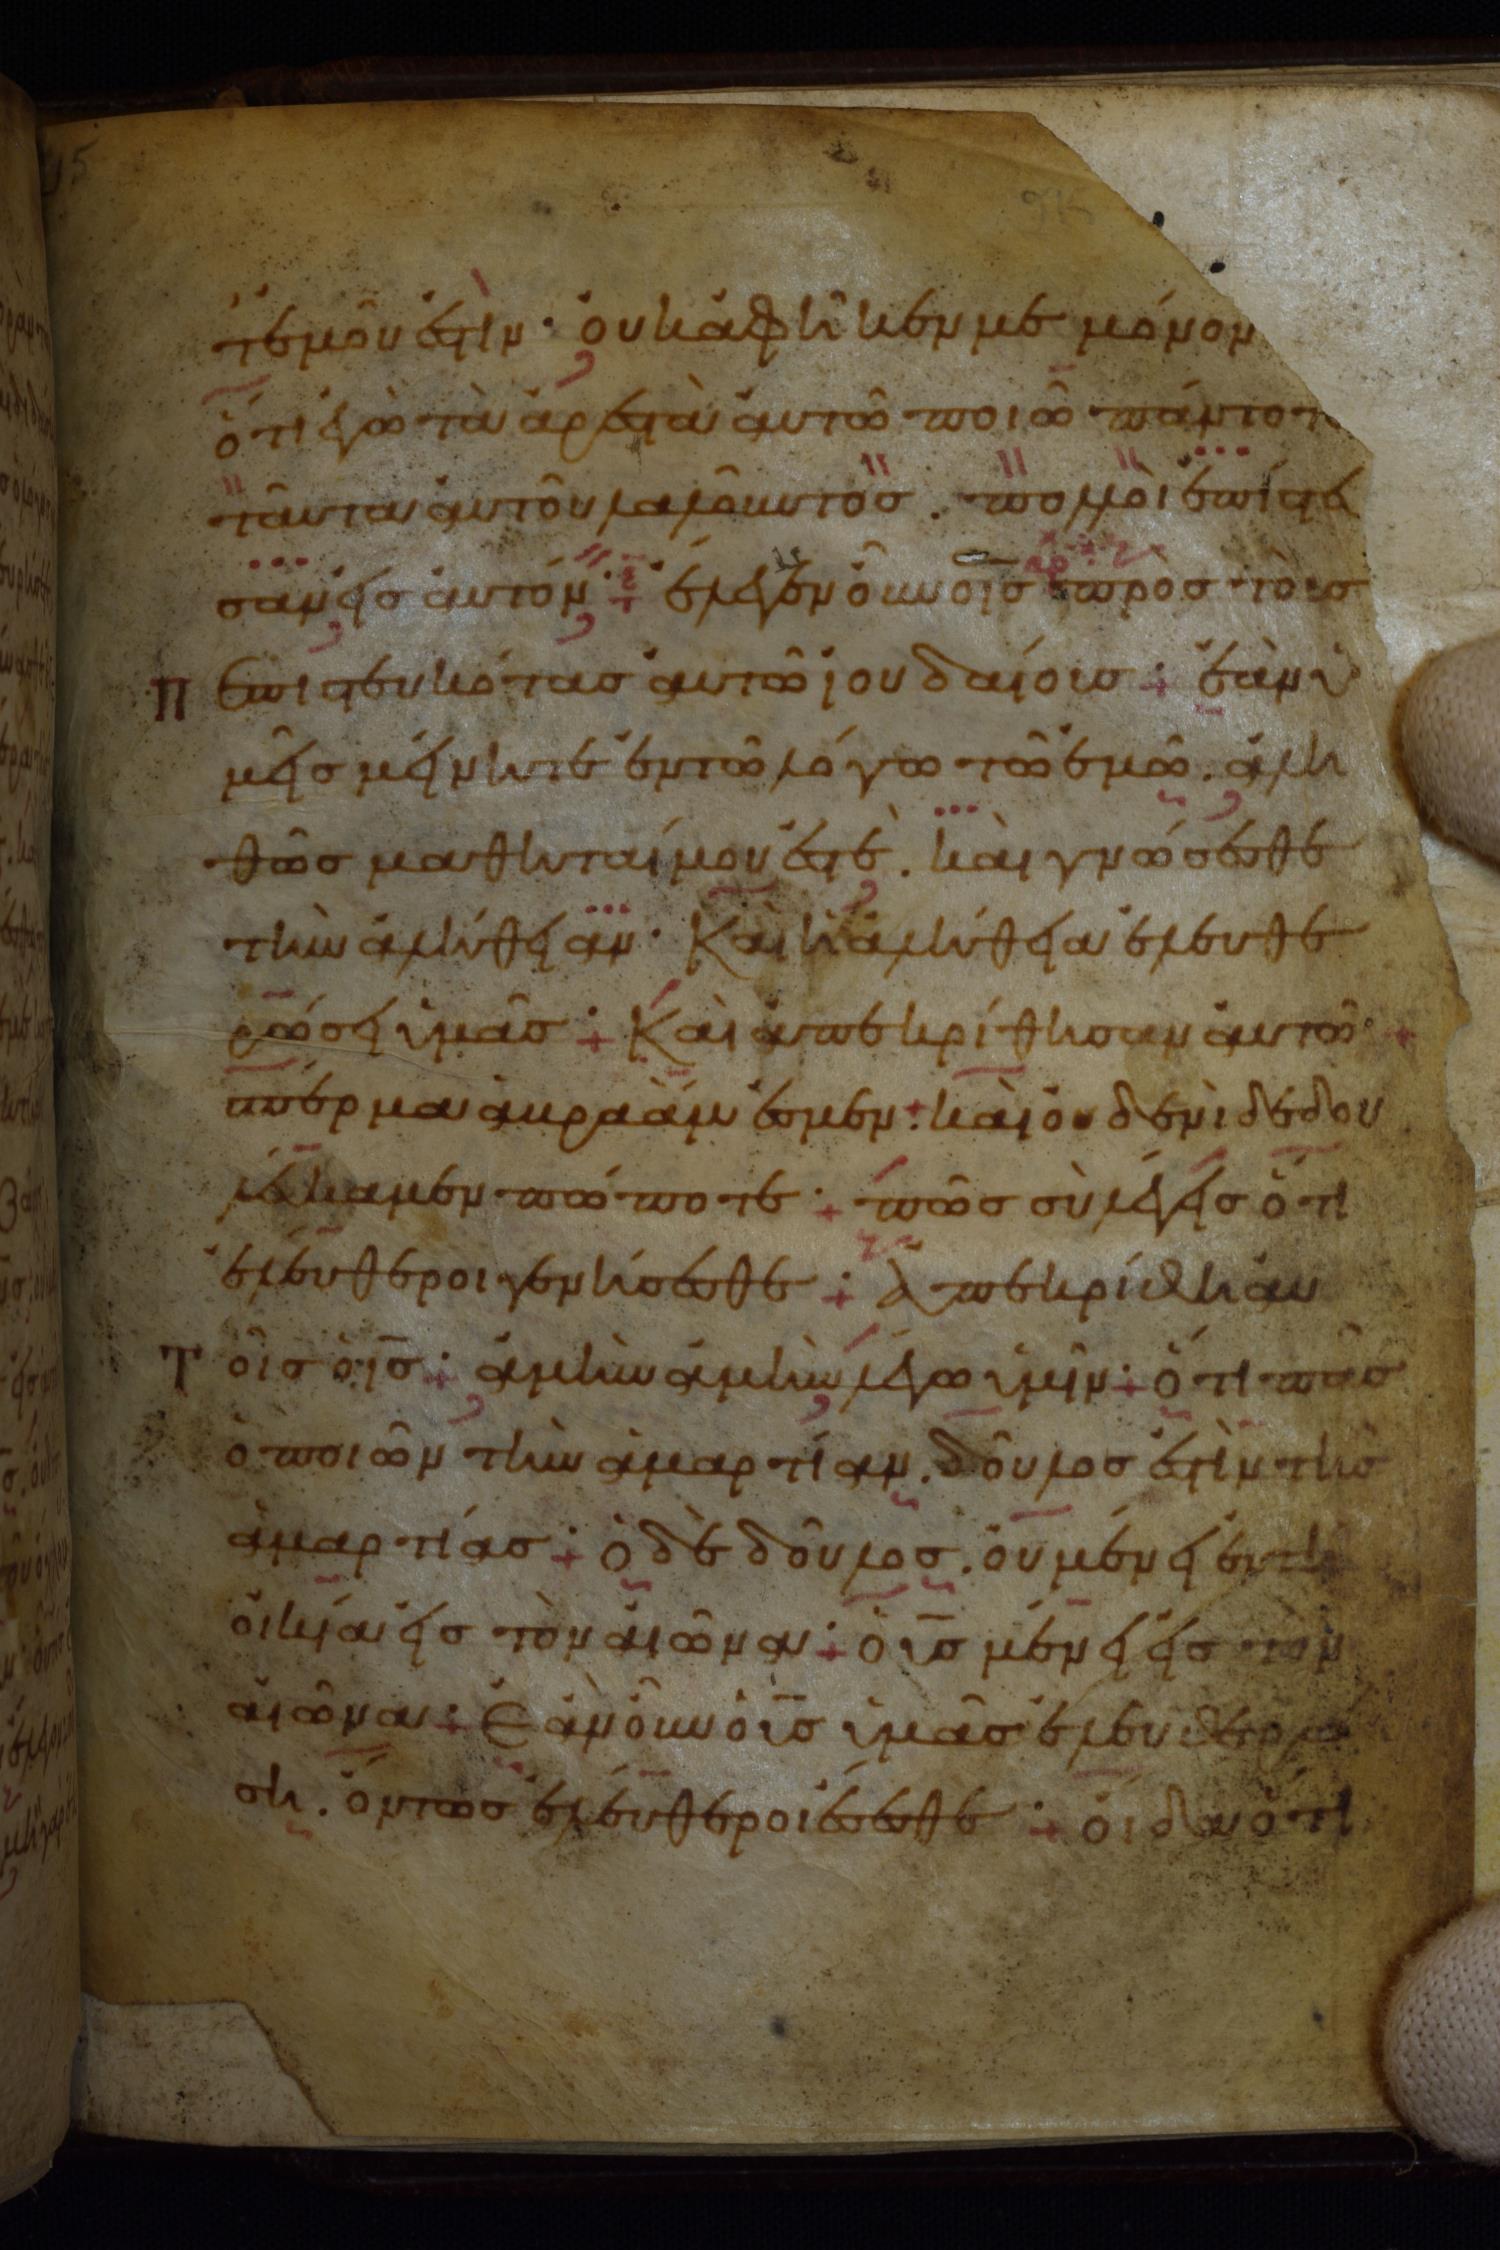 τεμοῦ ἐστίν· οὐκ ἀφῆκεν με μόνον
ὅτι ἐγὼ τὰ ἀρεστὰ αὐτῶ ποιῶ πάντοτε
ταῦτα αὐτοῦ λαλοῦντος. πολλοὶ ἐπίστευ
σαν εἰς αὐτόν· ἔλεγεν οὖν ὁ ις πρὸς τοὺς
Πεπιστευκότας αὐτῶ ἰουδαίους· ἐὰν ὑ
μεῖς μείνητε ἐν τῶ λόγω τῶ ἐμῶ. ἀλη
θῶς μαθηταί μου ἐστὲ. καὶ γνώσεσθε
τὴν ἀλήθειαν· Καὶ ἡ ἀλήθεια ἐλευθε
ρώσει ὑμᾶς· Καὶ ἀπεκρίθησαν αὐτῶ·
σπέρμα ἀβραάμ ἐσμεν· καὶ οὐδενὶ δεδου
λεύκαμεν πώποτε· πῶς σὺ λέγεις ὅτι
ἐλεύθεροι γενήσεσθε· Ἀπεκρίθη αὐ
Τοῖς ὁ ις· ἀμὴν ἀμὴν λέγω ὑμῖν· ὅτι πᾶς
ὁ ποιῶν τὴν ἁμαρτίαν. δοῦλος ἐστὶν τῆς
ἁμαρτίας· ὁ δὲ δοῦλος. οὐ μένει ἐν τῆ
οἰκία εἰς τὸν αἰῶνα· ὁ υς μένει εἰς τὸν
αἰῶνα· Ἐὰν οὖν ὁ υς ὑμᾶς ἐλευθερώ
ση. ὄντως ἐλεύθεροι ἔσεσθε· οἶδα ὅτι